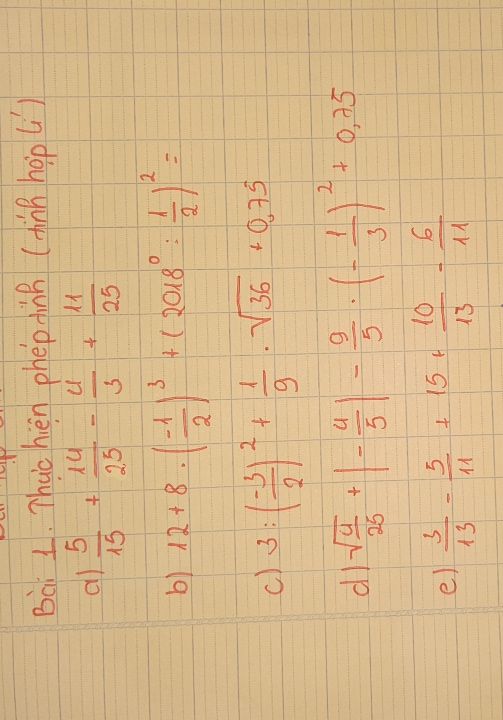 Bài 1. Thực hiện phép tính (tính hợp lí)
a) 5/15 + 14/25 - 4/3 + 11/25
b) 12 + 8 . (-1/2)³ + (2018⁰ : 1/2)² =
c) 3 : (-3/2)² + 1/9 . √36 + 0,75
d) √4/25 + |-4/5| - 9/5 . (-1/3)² + 0,75
e) 3/13 - 5/11 + 15 + 10/13 - 6/11